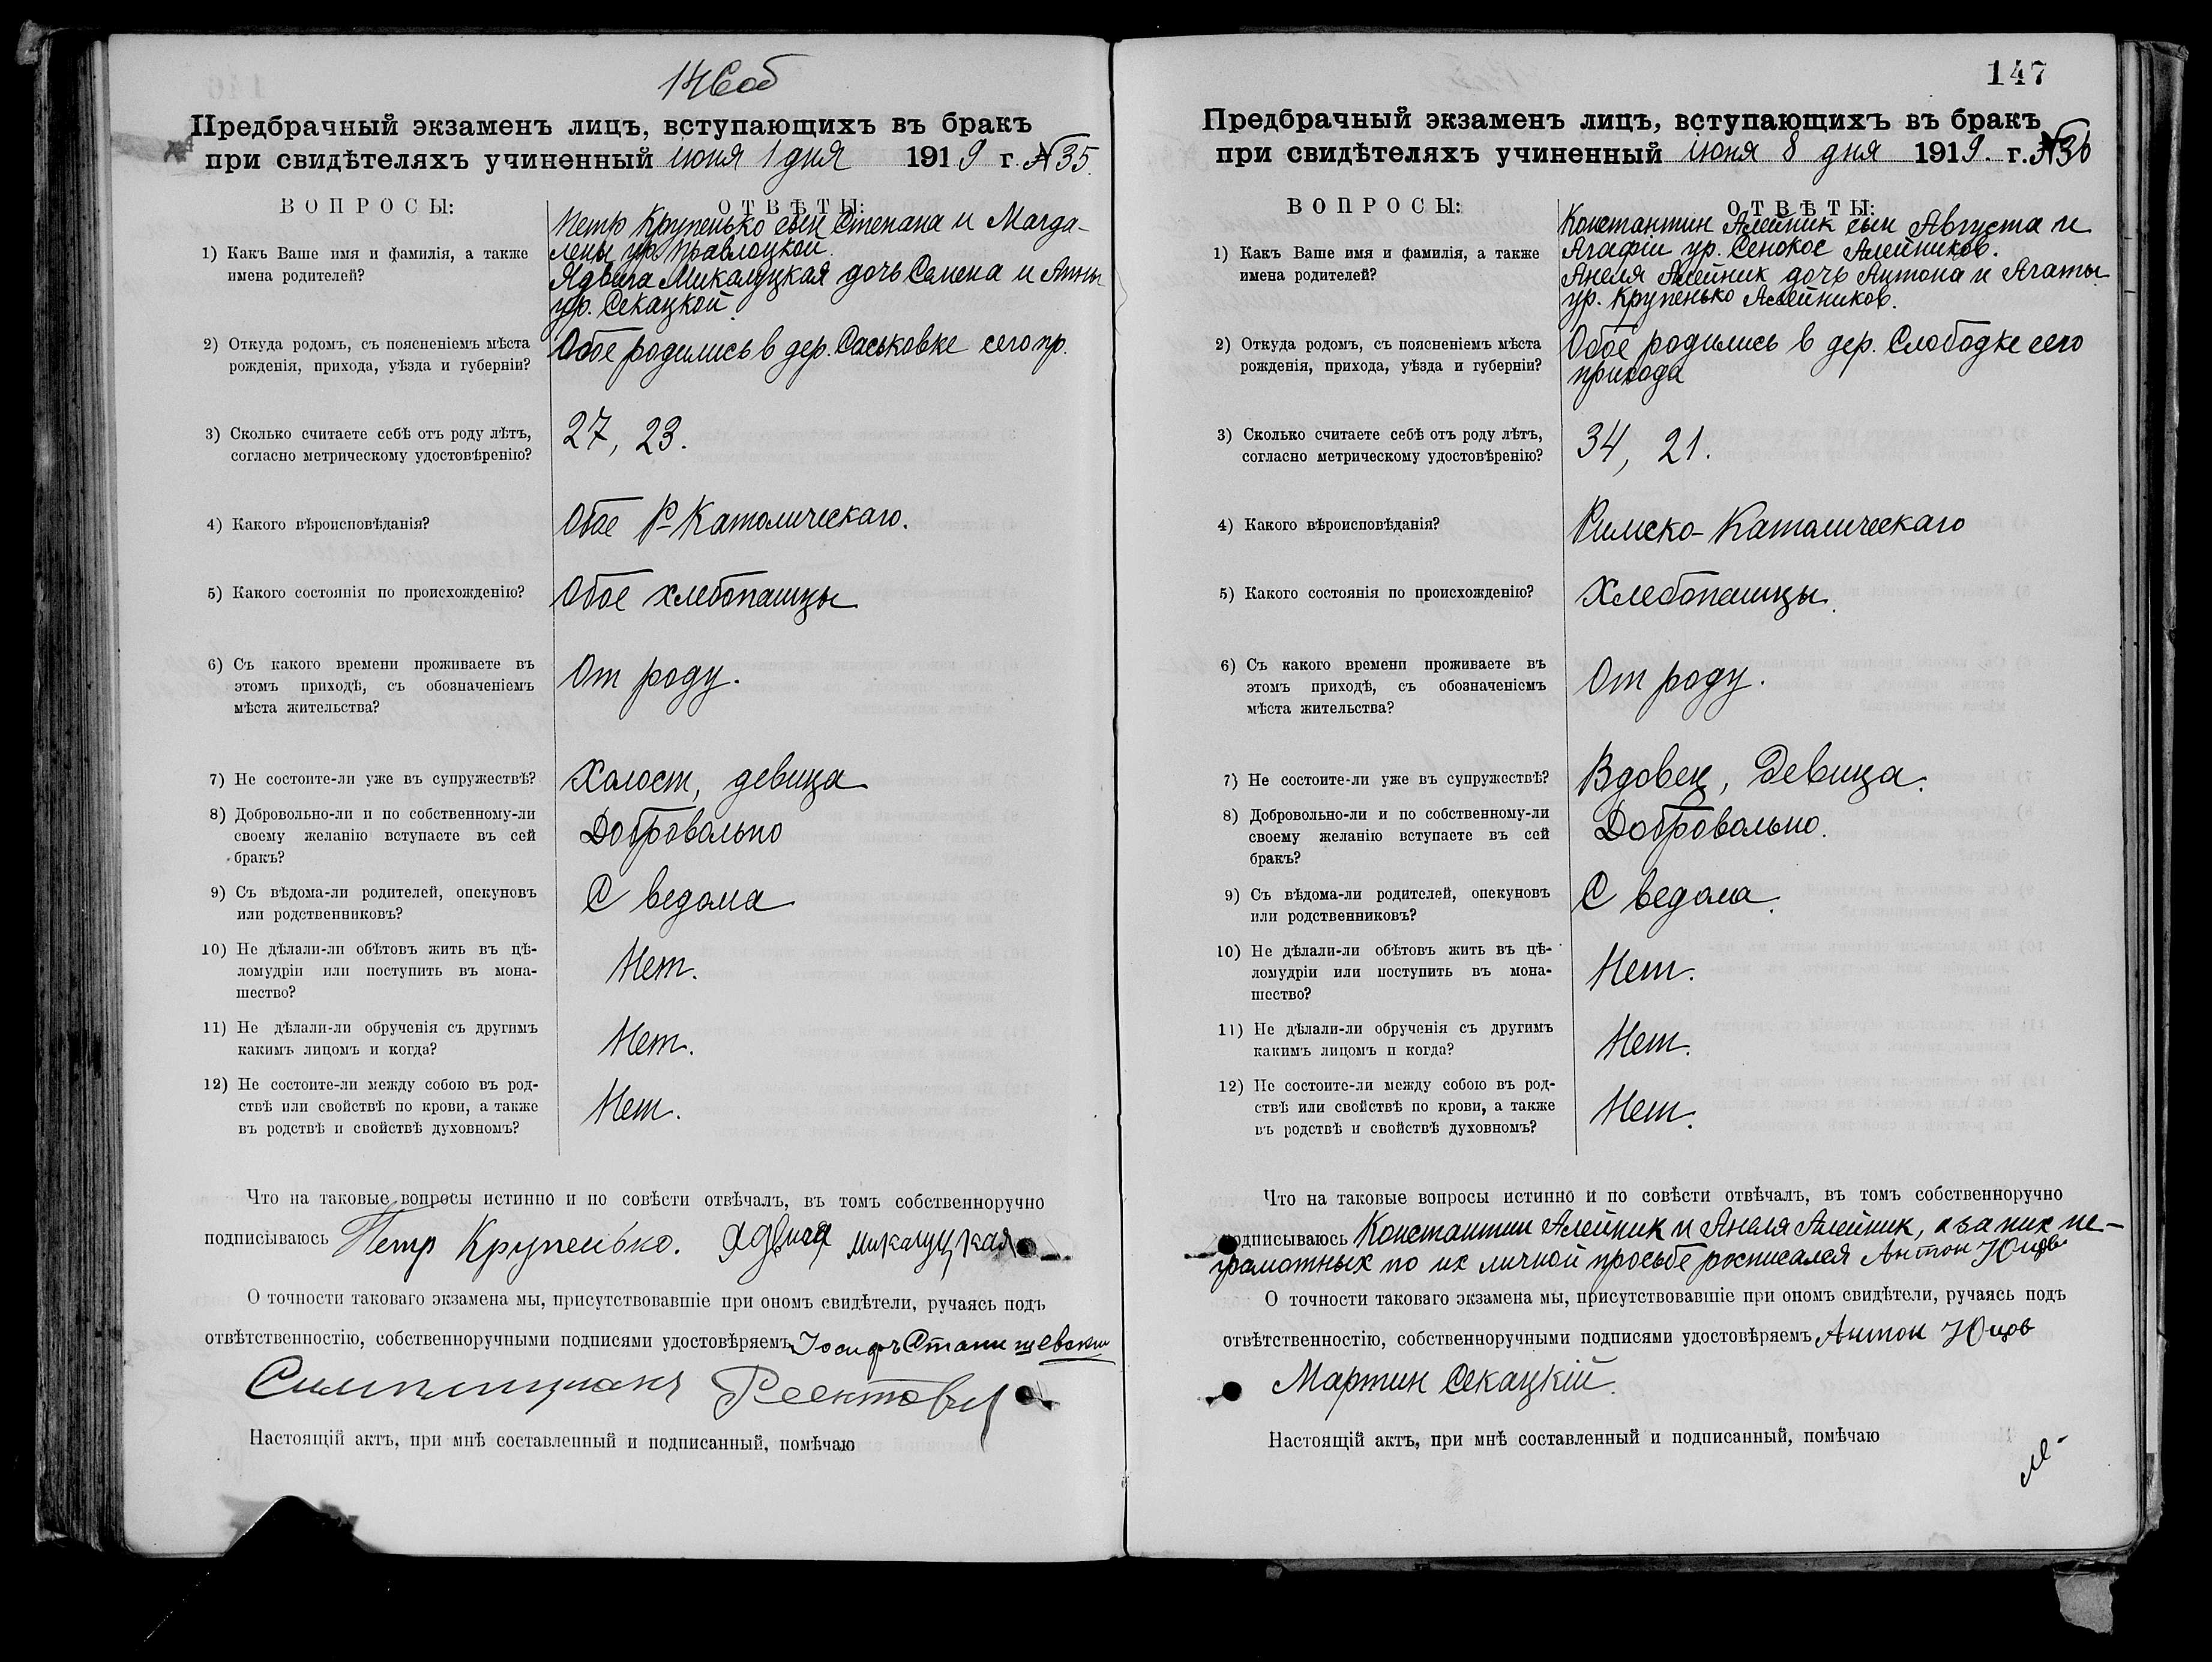 146 об
Предбрачный экзаменъ лицъ, вступающихъ въ бракъ
при свидѣтеляхъ учиненный іюня 1 дня 1919 г. №35.
ВОПРОСЫ:
ОТВѢТЫ:
1) Какъ Ваше имя и фамилія, а также
имена родителей?
Петр Крупенько сын Степана и Магда-
лены ур.
Ядвига Микалуцкая дочь Семена и Анны
ур. Секацкой.
2) Откуда родомъ, съ поясненіемъ мѣста
рожденія, прихода, уѣзда и губерніи?
Обое родились в дер. Саськовке сего пр.
3) Сколько считаете себѣ отъ роду лѣтъ,
согласно метрическому удостовѣренію?
27, 23.
4) Какого вѣроисповѣданія?
Обое Р-Католическаго.
5) Какого состоянія по происхожденію?
Обое хлебопашцы
6) Съ какого времени проживаете въ
этомъ приходѣ, съ обозначеніемъ
мѣста жительства?
От роду.
7) Не состоите-ли уже въ супружествѣ?
Холост, девица
8) Добровольно-ли и по собственному-ли
своему желанію вступаете въ сей
бракъ?
Добровольно
9) Съ вѣдома-ли родителей, опекуновъ
или родственниковъ?
С ведома
10) Не дѣлали-ли обѣтовъ жить въ цѣ-
ломудріи или поступить въ мона-
шество?
Нет.
11) Не дѣлали-ли обрученія съ другимъ
какимъ лицомъ и когда?
Нет.
12) Не состоите-ли между собою въ род-
ствѣ или свойствѣ по крови, а также
въ родствѣ и свойствѣ духовномъ?
Нет.
Что на таковые вопросы истинно и по совѣсти отвѣчалъ, въ томъ собственноручно
подписываюсь Петр Крупенько. Ядвига Микалуцкая
О точности таковаго экзамена мы, присутствовавшіе при ономъ свидѣтели, ручаясь подъ
отвѣтственностію, собственноручными подписями удостовѣряемъ Іосифъ
Настоящій актъ, при мнѣ составленный и подписанный, помѣчаю
147
Предбрачный экзаменъ лицъ, вступающихъ въ бракъ
при свидѣтеляхъ учиненный іюня 8 дня 1919. г. №36
ВОПРОСЫ:
ОТВѢТЫ:
1) Какъ Ваше имя и фамилія, а также
имена родителей?
Константин Алейник сын Августа и
Агафіи ур. Сенокос Алейников.
Анеля Алейник дочь Антона и Агаты
ур. Крупенько Алейников.
2) Откуда родомъ, съ поясненіемъ мѣста
рожденія, прихода, уѣзда и губерніи?
Обое родились в дер. Слободке сего
прихода
3) Сколько считаете себѣ отъ роду лѣтъ,
согласно метрическому удостовѣренію?
34, 21.
4) Какого вѣроисповѣданія?
Римско-Католическаго
5) Какого состоянія по происхожденію?
Хлебопашцы.
6) Съ какого времени проживаете въ
этомъ приходѣ, съ обозначеніемъ
мѣста жительства?
От роду.
7) Не состоите-ли уже въ супружествѣ?
Вдовец, Девица.
8) Добровольно-ли и по собственному-ли
своему желанію вступаете въ сей
бракъ?
Добровольно.
9) Съ вѣдома-ли родителей, опекуновъ
или родственниковъ?
С ведома.
10) Не дѣлали-ли обѣтовъ жить въ цѣ-
ломудріи или поступить въ мона-
шество?
Нет.
11) Не дѣлали-ли обрученія съ другимъ
какимъ лицомъ и когда?
Нет.
12) Не состоите-ли между собою въ род-
ствѣ или свойствѣ по крови, а также
въ родствѣ и свойствѣ духовномъ?
Нет.
Что на таковые вопросы истинно и по совѣсти отвѣчалъ, въ томъ собственноручно
подписываюсь Константин Алейник и Анеля Алейник, а за них не-
грамотных по их личной просьбе росписался Антон Юцов
О точности таковаго экзамена мы, присутствовавшіе при ономъ свидѣтели, ручаясь подъ
отвѣтственностію, собственноручными подписями удостовѣряемъ Антон Юцов
Мартин Секацкій.
Настоящій актъ, при мнѣ составленный и подписанный, помѣчаю